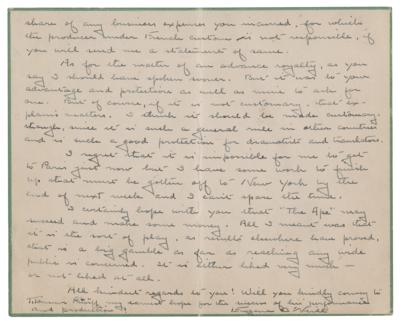 share of any business expenses you incurred, for which
the producer under French custom is not responsible, if
you will send me a statement of same.
As for the matter of an advance royalty, as you
say I should have spoken sooner. But it was to your
advantage and protection as well as mine to ask for
one. But of course, if it is not customary, that ex-
plains matters. I think it should be made customary,
though, since it is such a general rule in other countries
and is such a good protection for dramatists and translators.
I regret that it is impossible for me to get
to Paris just now but I have some work to finish
up that must be gotten off to New York by the
end of next week and I can't spare the time.
I certainly hope with you that "The Ape" may
succeed and make some money. All I meant was that
it is the sort of play, as results elsewhere have proved,
that is a big gamble as far as reaching any wide
public is concerned. It is either liked very much —
or not liked at all.
All kindest regards to you! Will you kindly convey to
my earnest hope for the success of his performance
and production! Eugene O'Neill